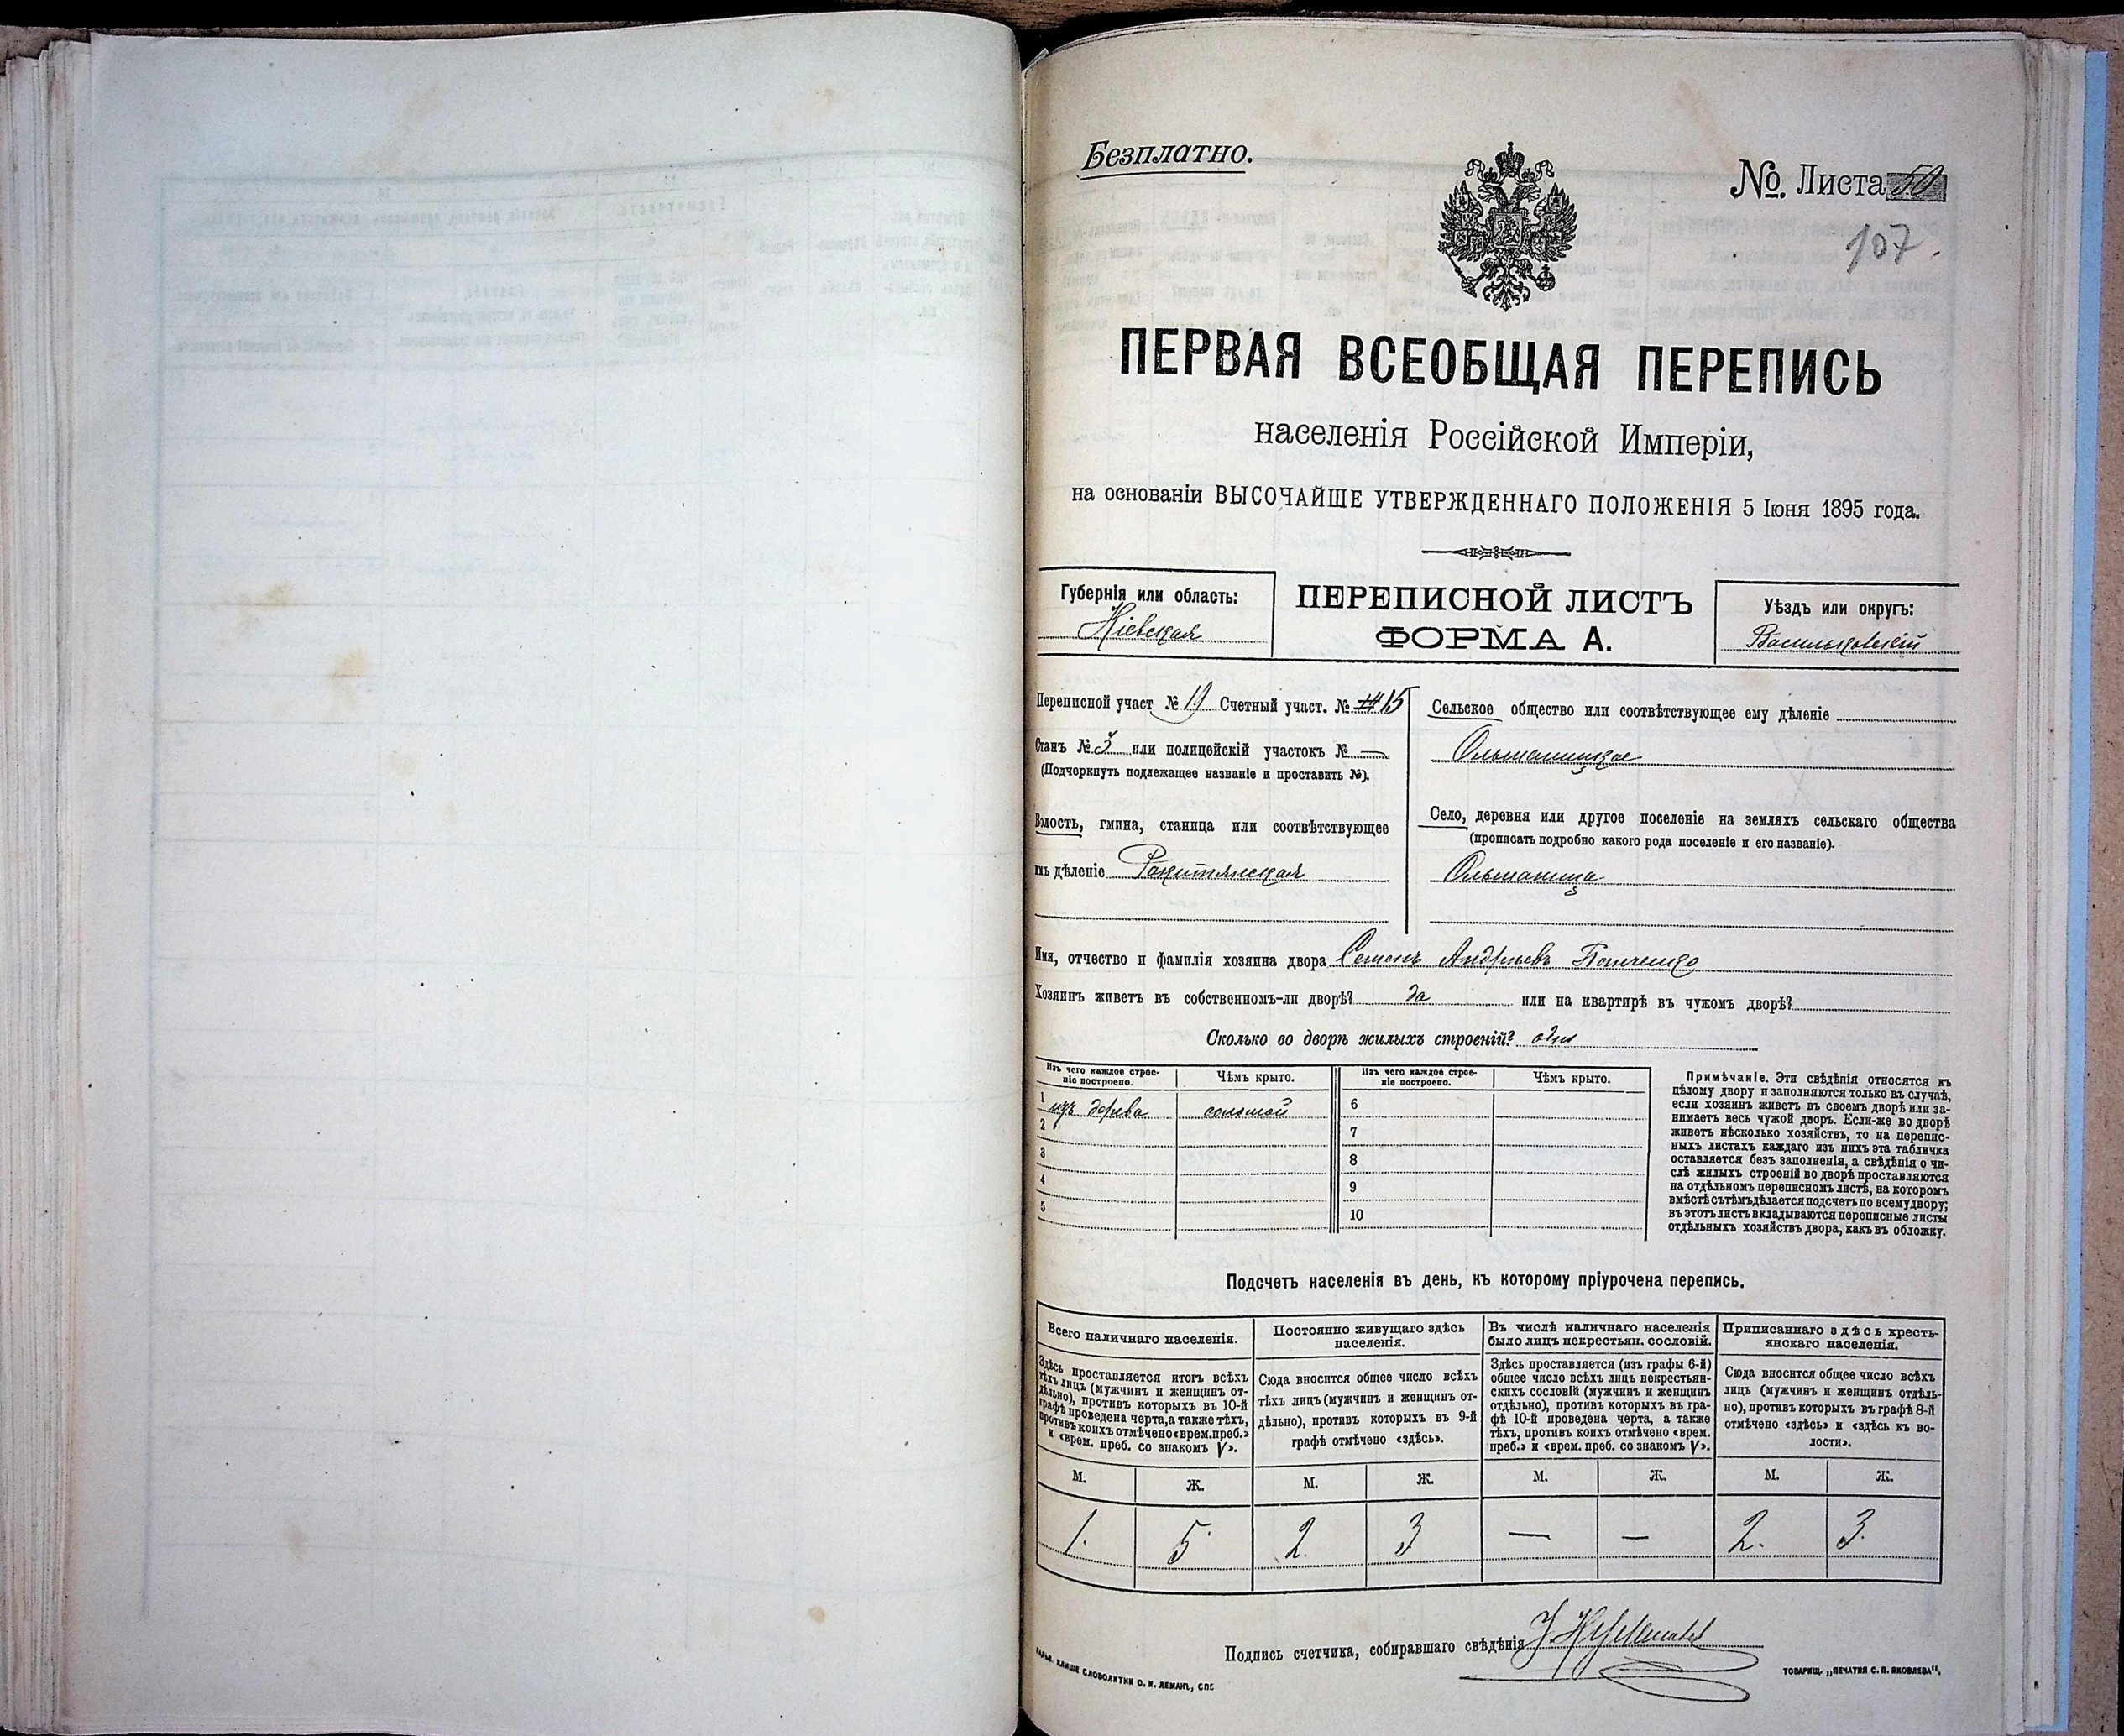 Безплатно.
№ Листа 50
107.
ПЕРВАЯ ВСЕОБЩАЯ ПЕРЕПИСЬ
населенія Россійской Имперіи,
на основаніи ВЫСОЧАЙШЕ УТВЕРЖДЕННАГО ПОЛОЖЕНІЯ 5 Іюня 1895 года.
Губернія или область:
Кіевская
ПЕРЕПИСНОЙ ЛИСТЪ
ФОРМА А.
Уѣздъ или округъ:
Васильковскій
Переписной участ № 19 Счетный участ. № 15
Станъ № 3 или полицейскій участокъ № —
(Подчеркнуть подлежащее названіе и проставить №).
Волость, гмина, станица или соотвѣтствующее
имъ дѣленіе Рокитянская
Сельское общество или соотвѣтствующее ему дѣленіе
Ольшаницкое
Село, деревня или другое поселеніе на земляхъ сельскаго общества
(прописать подробно какого рода поселеніе и его названіе).
Ольшаница
Имя, отчество и фамилія хозяина двора Семенъ Андреевъ Панченко
Хозяинъ живетъ въ собственномъ-ли дворѣ? да или на квартирѣ въ чужомъ дворѣ?
Сколько во дворѣ жилыхъ строеній? одно
Изъ чего каждое строе-
ніе построено.
Чѣмъ крыто.
Изъ чего каждое строе-
ніе построено.
Чѣмъ крыто.
1 изъ дерева соломой
2
3
4
5
6
7
8
9
10
Примѣчаніе. Эти свѣдѣнія относятся къ
цѣлому двору и заполняются только въ случаѣ,
если хозяинъ живетъ въ своемъ дворѣ или за-
нимаетъ весь чужой дворъ. Если-же во дворѣ
живетъ нѣсколько хозяйствъ, то на перепис-
ныхъ листахъ каждаго изъ нихъ эта табличка
оставляется безъ заполненія, а свѣдѣнія о чи-
слѣ жилыхъ строеній во дворѣ проставляются
на отдѣльномъ переписномъ листѣ, на которомъ
вмѣстѣ съ тѣмъ дѣлается подсчетъ по всему двору;
въ этотъ листъ вкладываются переписные листы
отдѣльныхъ хозяйствъ двора, какъ въ обложку.
Подсчетъ населенія въ день, къ которому пріурочена перепись.
Всего наличнаго населенія.
Здѣсь проставляется итогъ всѣхъ
тѣхъ лицъ (мужчинъ и женщинъ от-
дѣльно), противъ которыхъ въ 10-й
графѣ проведена черта, а также тѣхъ,
противъ коихъ отмѣчено «врем. преб.»
и «врем. преб. со знакомъ V».
Постоянно живущаго здѣсь
населенія.
Сюда вносится общее число всѣхъ
тѣхъ лицъ (мужчинъ и женщинъ от-
дѣльно), противъ которыхъ въ 9-й
графѣ отмѣчено «здѣсь».
Въ числѣ наличнаго населенія
было лицъ некрестьян. сословій.
Здѣсь проставляется (изъ графы 6-й)
общее число всѣхъ лицъ некрестьян-
скихъ сословій (мужчинъ и женщинъ
отдѣльно), противъ которыхъ въ гра-
фѣ 10-й проведена черта, а также
тѣхъ, противъ коихъ отмѣчено «врем.
преб.» и «врем. преб. со знакомъ V».
Приписаннаго здѣсь кресть-
янскаго населенія.
Сюда вносится общее число всѣхъ
лицъ (мужчинъ и женщинъ отдѣль-
но), противъ которыхъ въ графѣ 8-й
отмѣчено «здѣсь» и «здѣсь въ во-
лости».
М. Ж. М. Ж. М. Ж. М. Ж.
1. 5 2. 3 — — 2. 3.
Подпись счетчика, собиравшаго свѣдѣнія
КЛИШЕ СЛОВОЛИТНИ О. И. ЛЕМАНЪ, СПБ
ТОВАРИЩ. „ПЕЧАТНЯ С. П. ЯКОВЛЕВА",